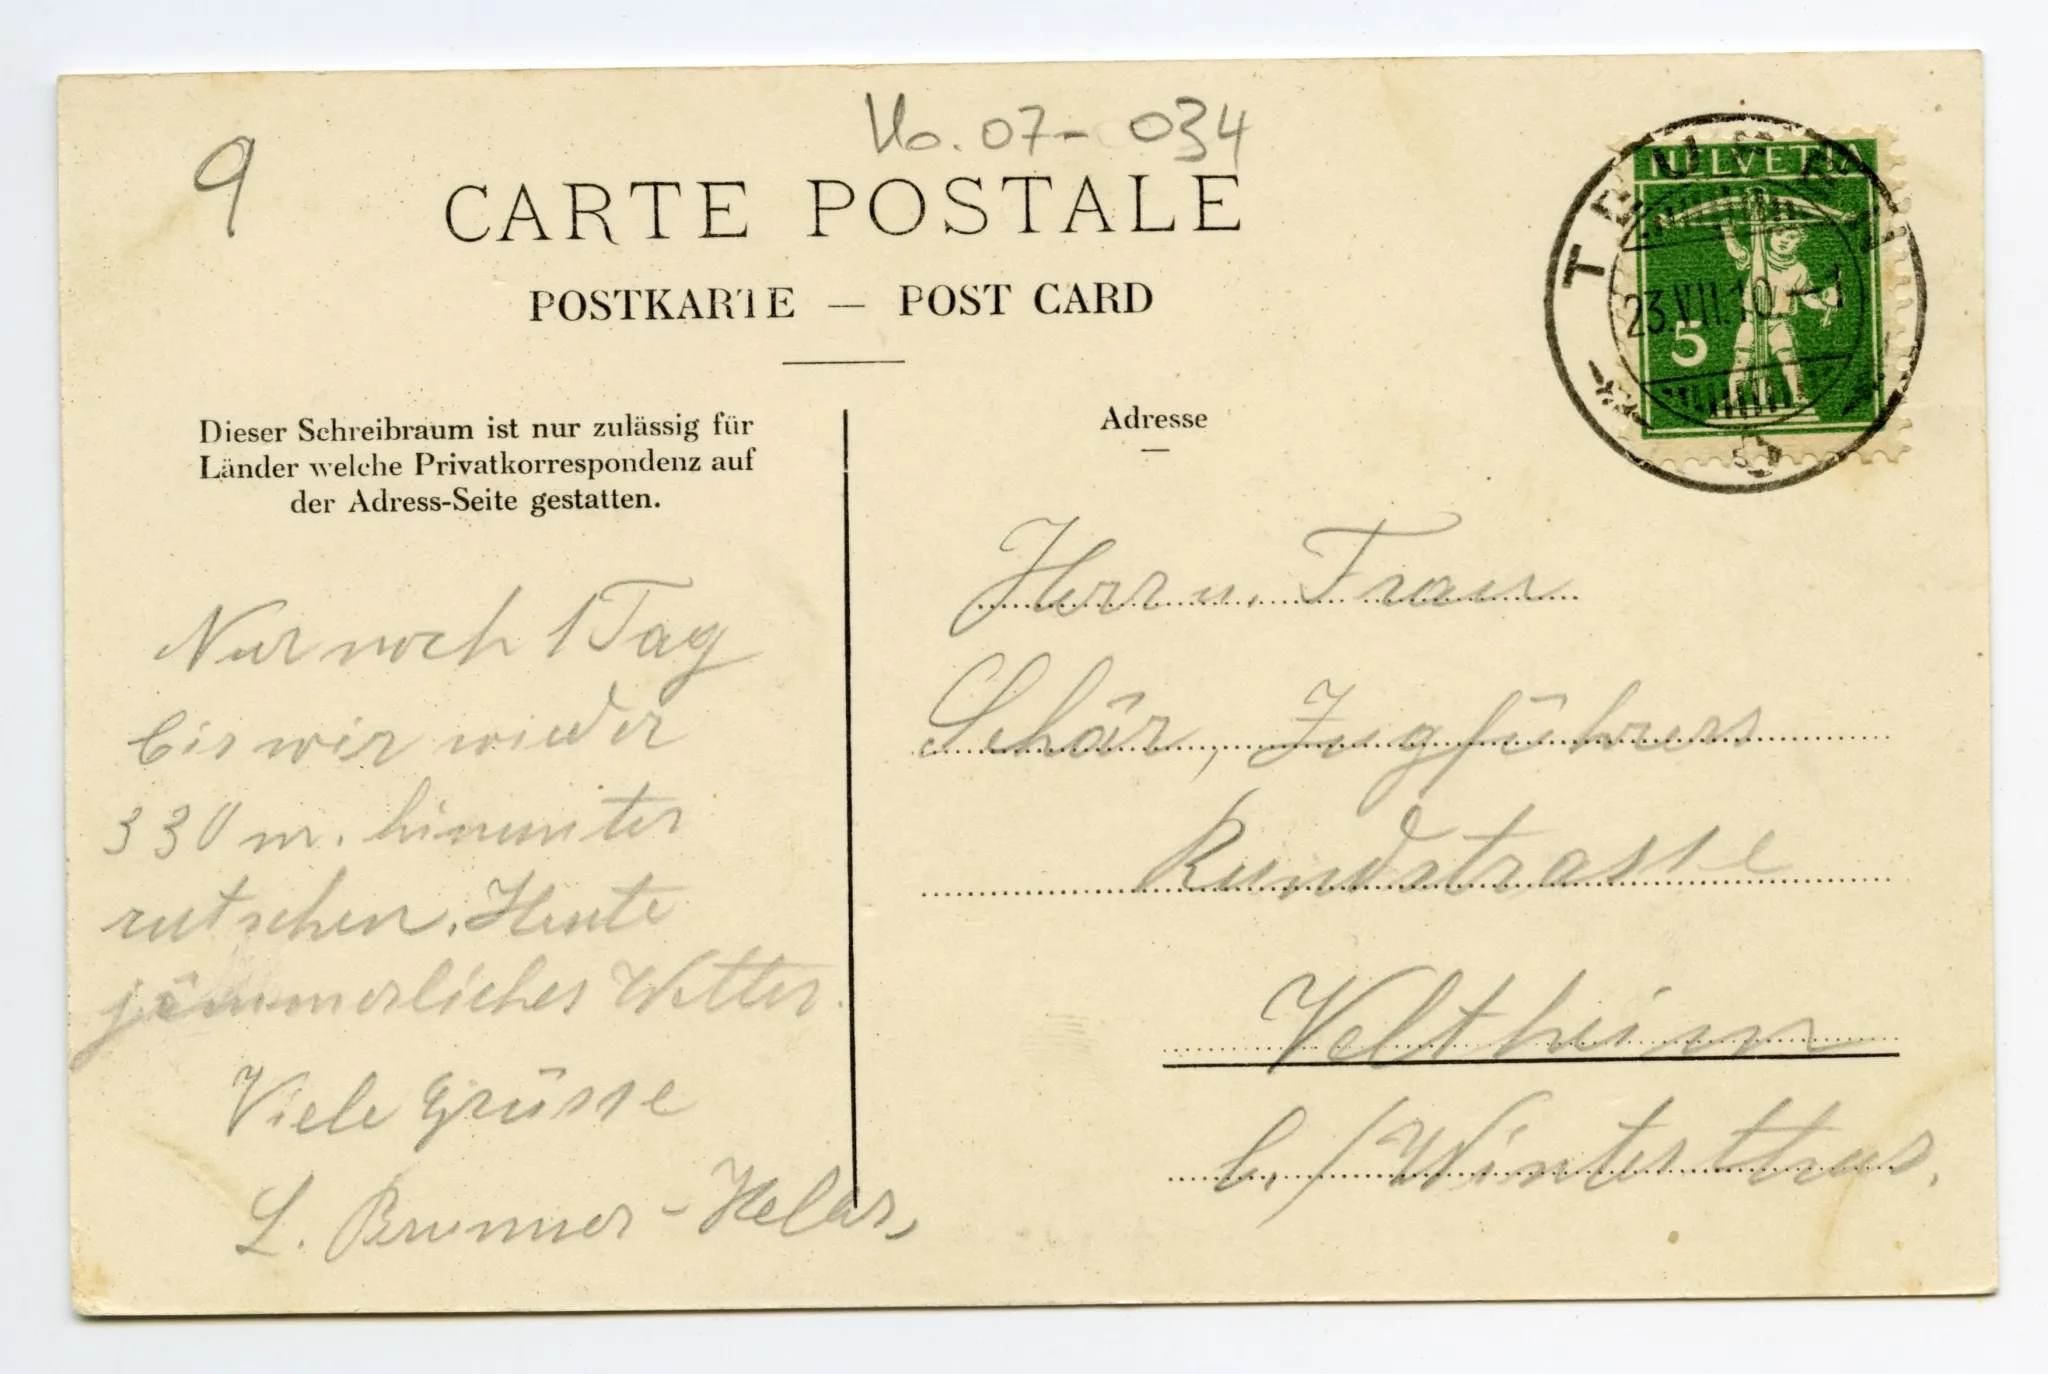 9
Vo. 07-034
CARTE POSTALE
POSTKARTE — POST CARD
HELVETIA
TEUFEN
23.VII.10.
5
Dieser Schreibraum ist nur zulässig für
Länder welche Privatkorrespondenz auf
der Adress-Seite gestatten.
Nur noch 1 Tag
bis wir wieder
330 m. hinunter
rutschen. Heute
jämmerliches Wetter.
Viele Grüsse
L. Brunner-
Adresse
Herr u. Frau
Schär, Zugführers
Rundstrasse
Veltheim
b./Winterthur.